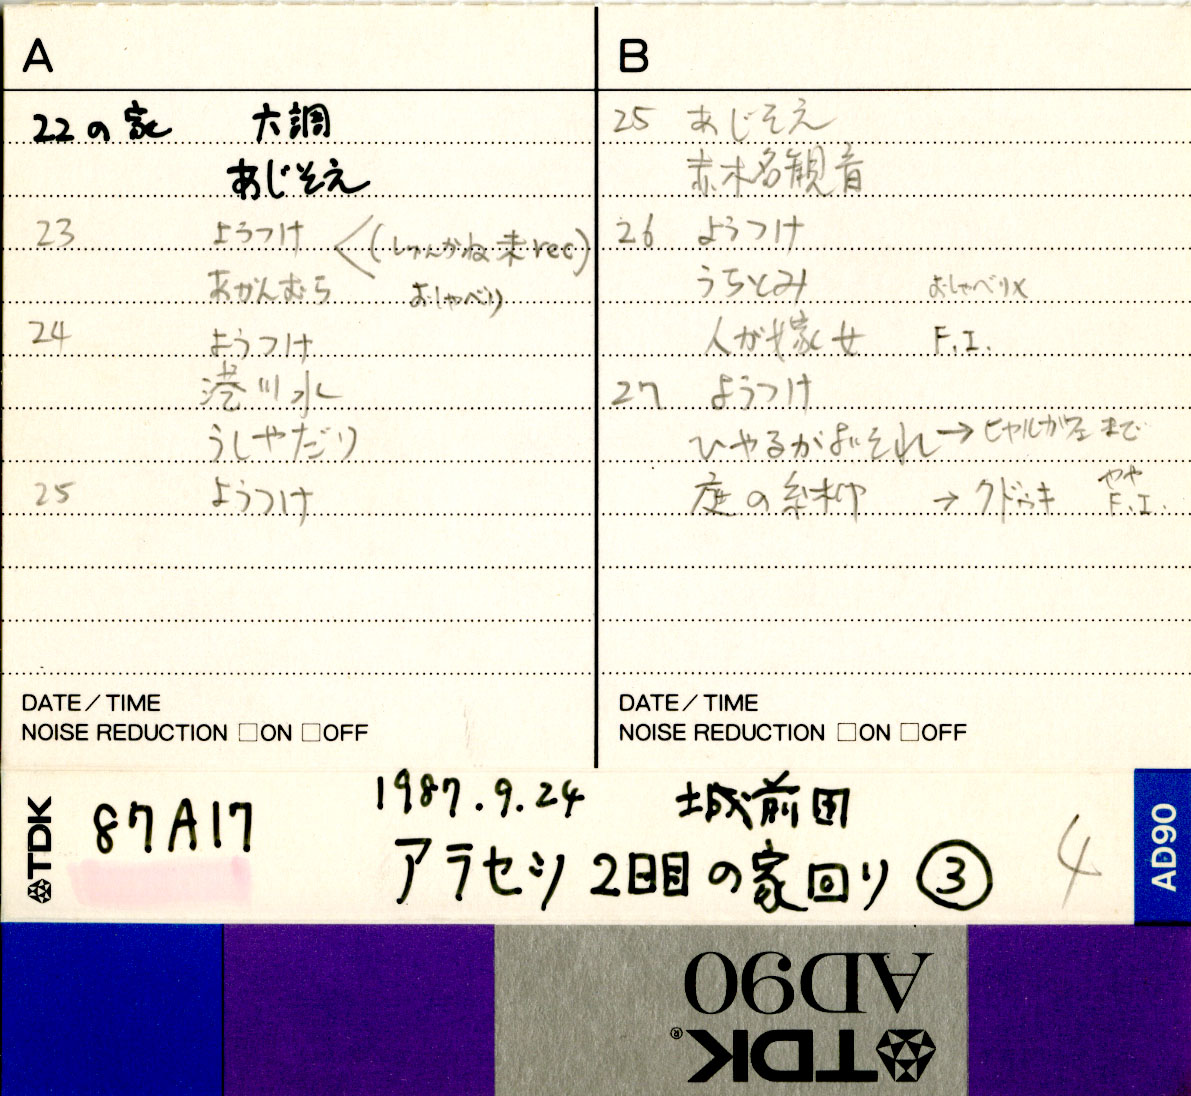 A
22の家 六調
あじそえ
23 ようつけ <(しゅんかね未rec)
あかんむら おしゃべり
24 ようつけ
港川水
うしやだり
25 ようつけ
DATE/TIME
NOISE REDUCTION □ON □OFF
B
25 あじそえ
赤木名観音
26 ようつけ
うちとみ おしゃべり×
人が嫁女 F.I.
27 ようつけ
ひやるがよそれ→ヒヤルガフェまで
庭の糸柳 →クドゥキ やや
F.I.
DATE/TIME
NOISE REDUCTION □ON □OFF
TDK
87A17
1987.9.24 城前田
アラセツ2日目の家回り ③
4
AD90
AD90
TDK®